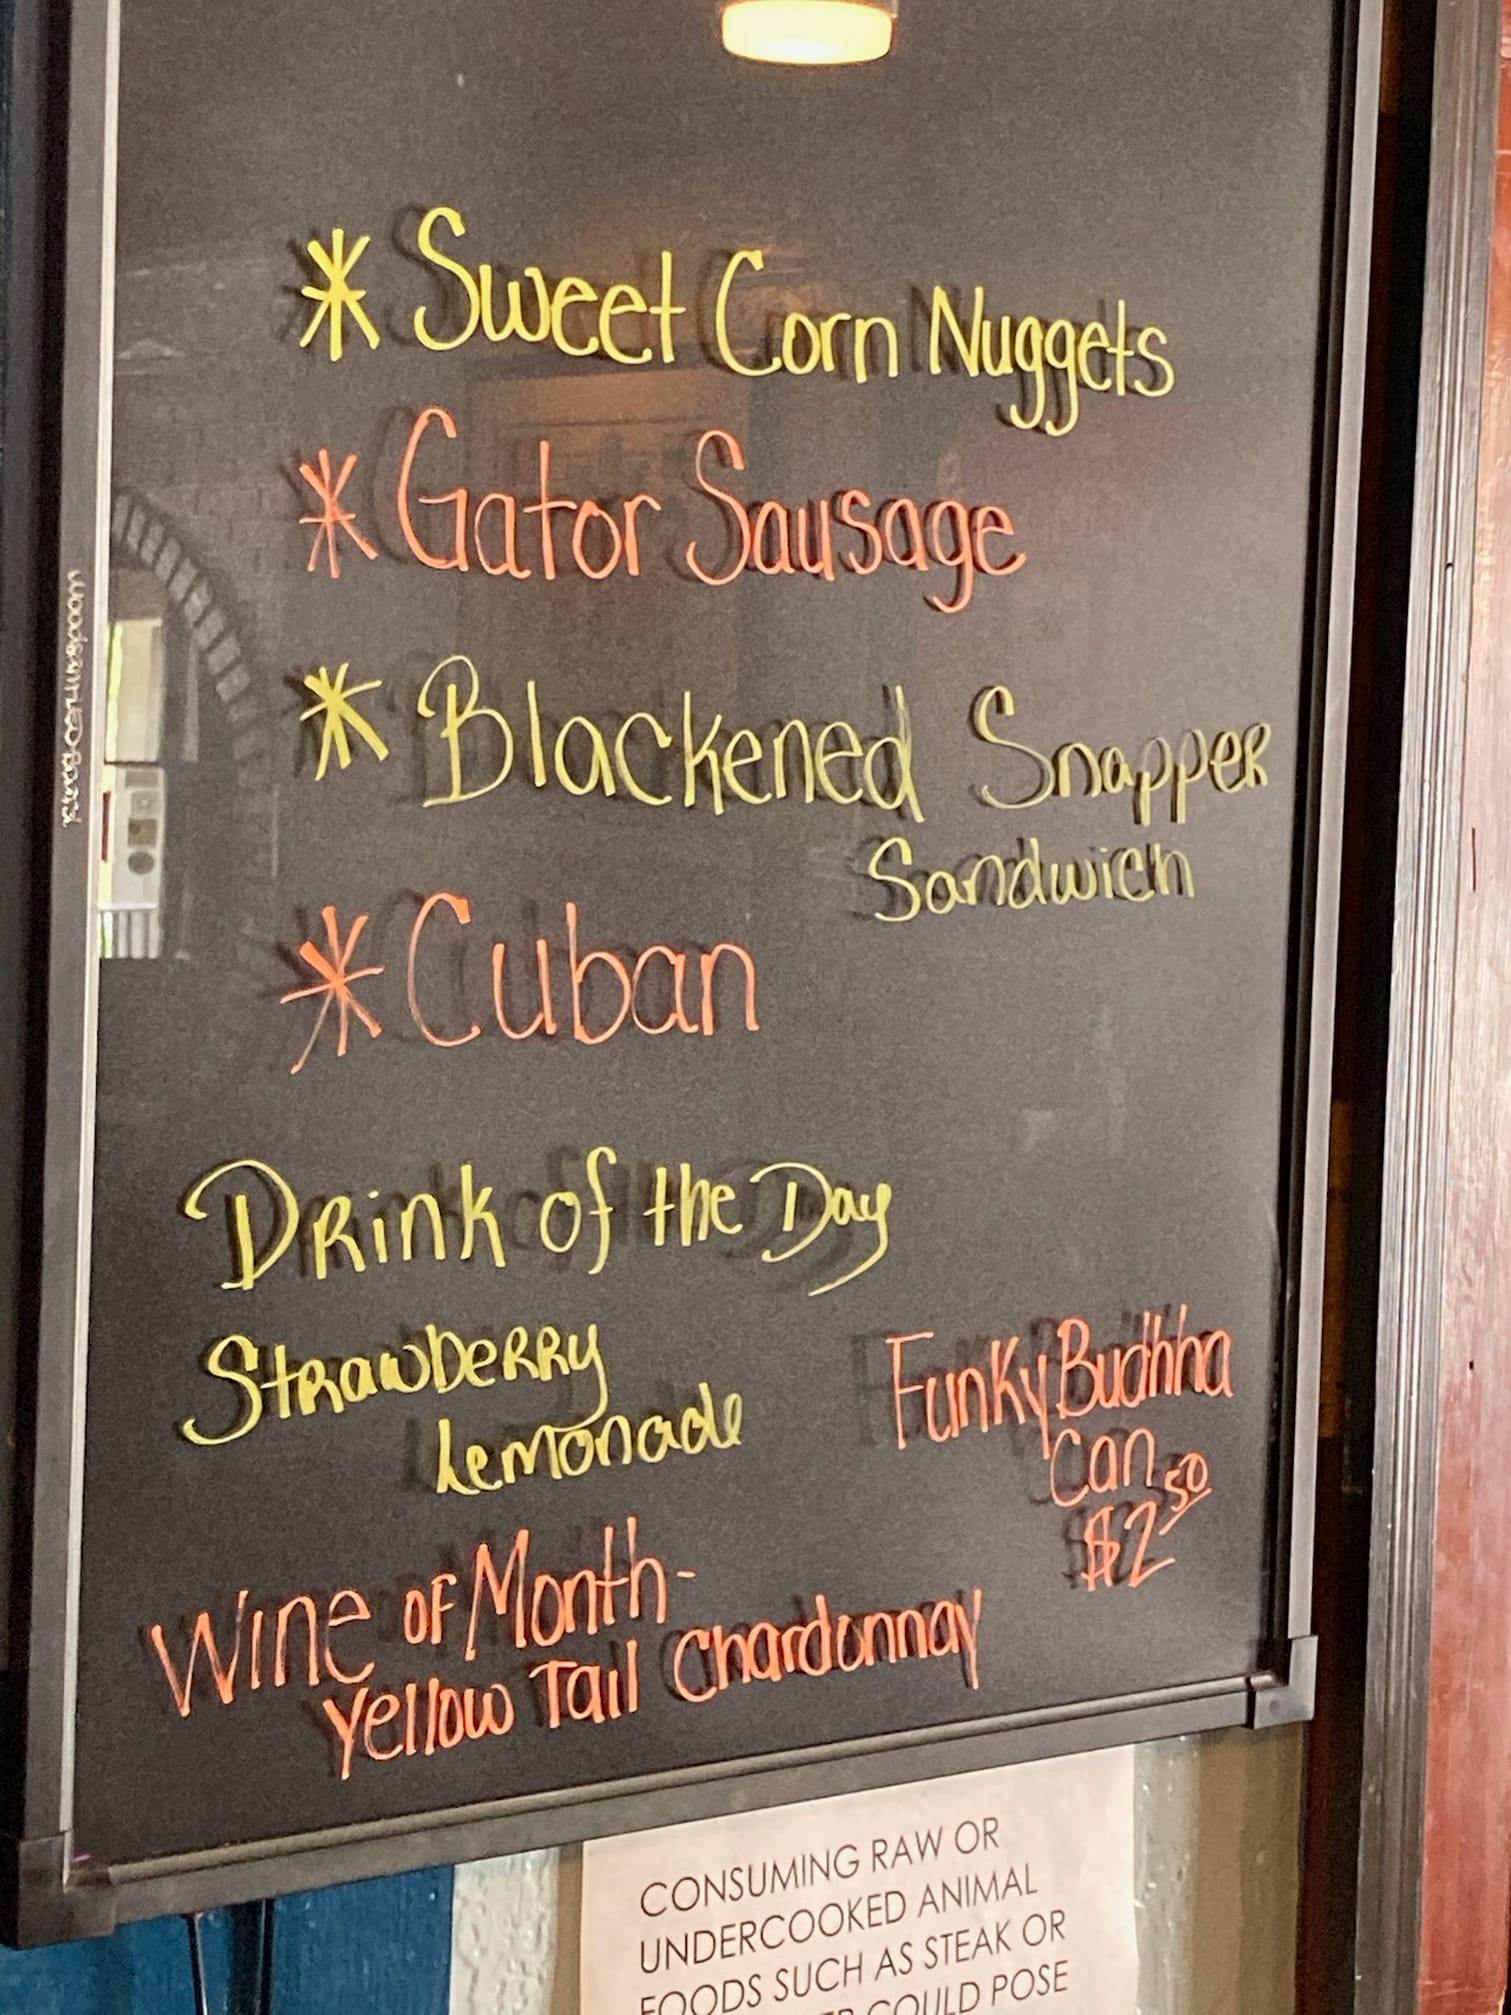 * Sweet Corn Nuggets
* Gator Sausage
* Blackened Snapper
Sandwich
* Cuban
Drink of the Day
Strawberry
Lemonade
Funky Budhha
Can
$2.50
Wine of Month-
Yellow Tail Chardonnay
CONSUMING RAW OR
UNDERCOOKED ANIMAL
FOODS SUCH AS STEAK OR
COULD POSE